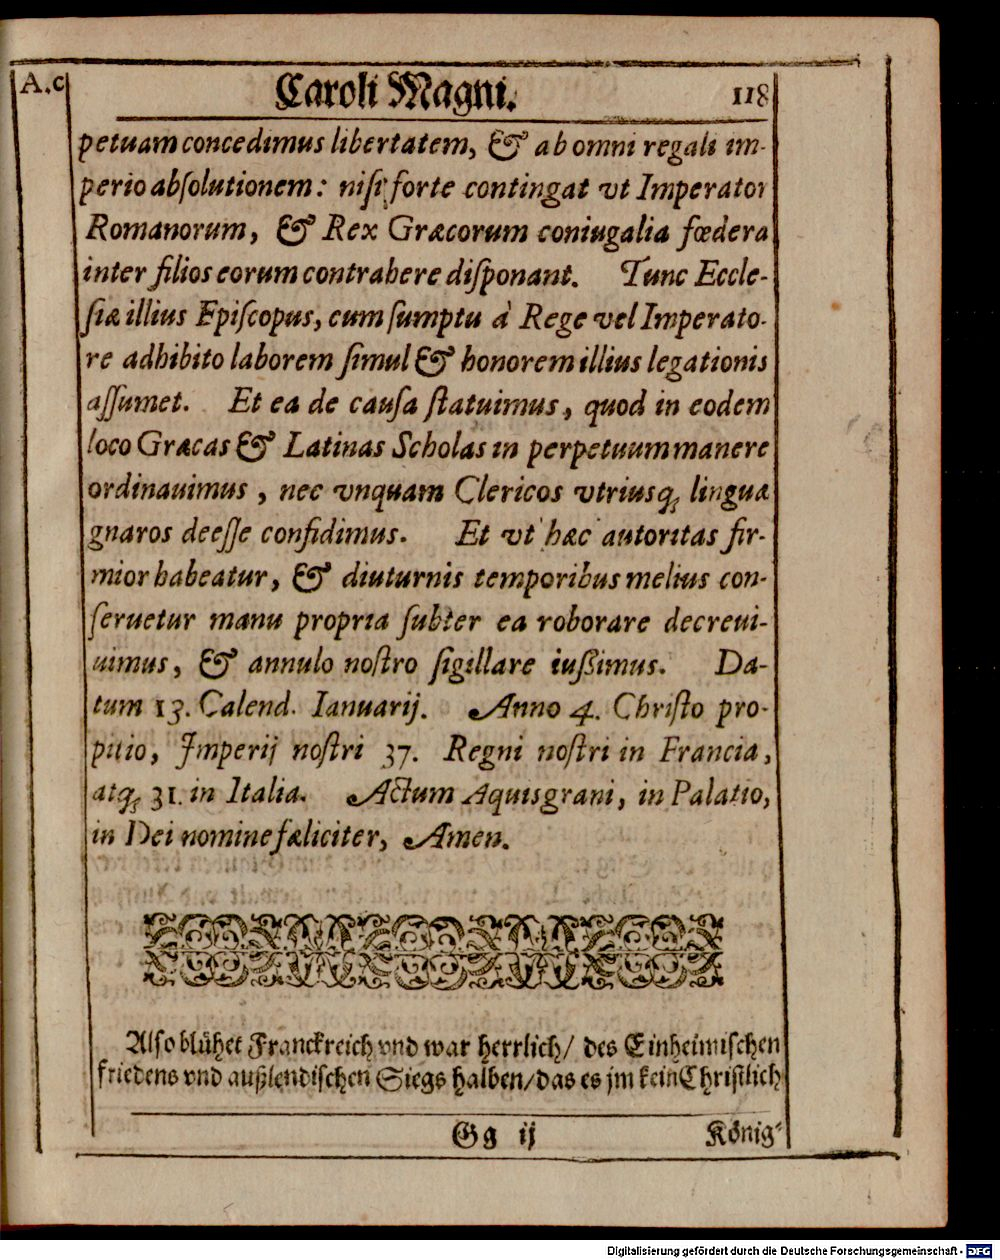 A.C
Caroli Magni.
118
petuam concedimus libertatem, & ab omni regali im-
perio absolutionem: nisi forte contingat vt Imperator
Romanorum, & Rex Græcorum coniugalia fœdera
inter filios eorum contrahere disponant. Tunc Eccle-
siæ illius Episcopus, cum sumptu à Rege vel Imperato-
re adhibito laborem simul & honorem illius legationis
assumet. Et ea de causa statuimus, quod in eodem
loco Græcas & Latinas Scholas in perpetuum manere
ordinauimus, nec vnquam Clericos vtriusq; linguæ
gnaros deesse confidimus. Et vt hæc autoritas fir-
mior habeatur, & diuturnis temporibus melius con-
seruetur manu propria subter ea roborare decreui-
uimus, & annulo nostro sigillare iußimus. Da-
tum 13. Calend. Ianuarij. Anno 4. Christo pro-
pitio, Imperij nostri 37. Regni nostri in Francia,
atq; 31. in Italia. Actum Aquisgrani, in Palatio,
in Dei nomine fæliciter, Amen.
Also blühet Franckreich vnd war herrlich/ des Einheimischen
friedens vnd außlendischen Siegs halben/das es jm kein Christlich
Gg ij
König-
Digitalisierung gefördert durch die Deutsche Forschungsgemeinschaft - DFG